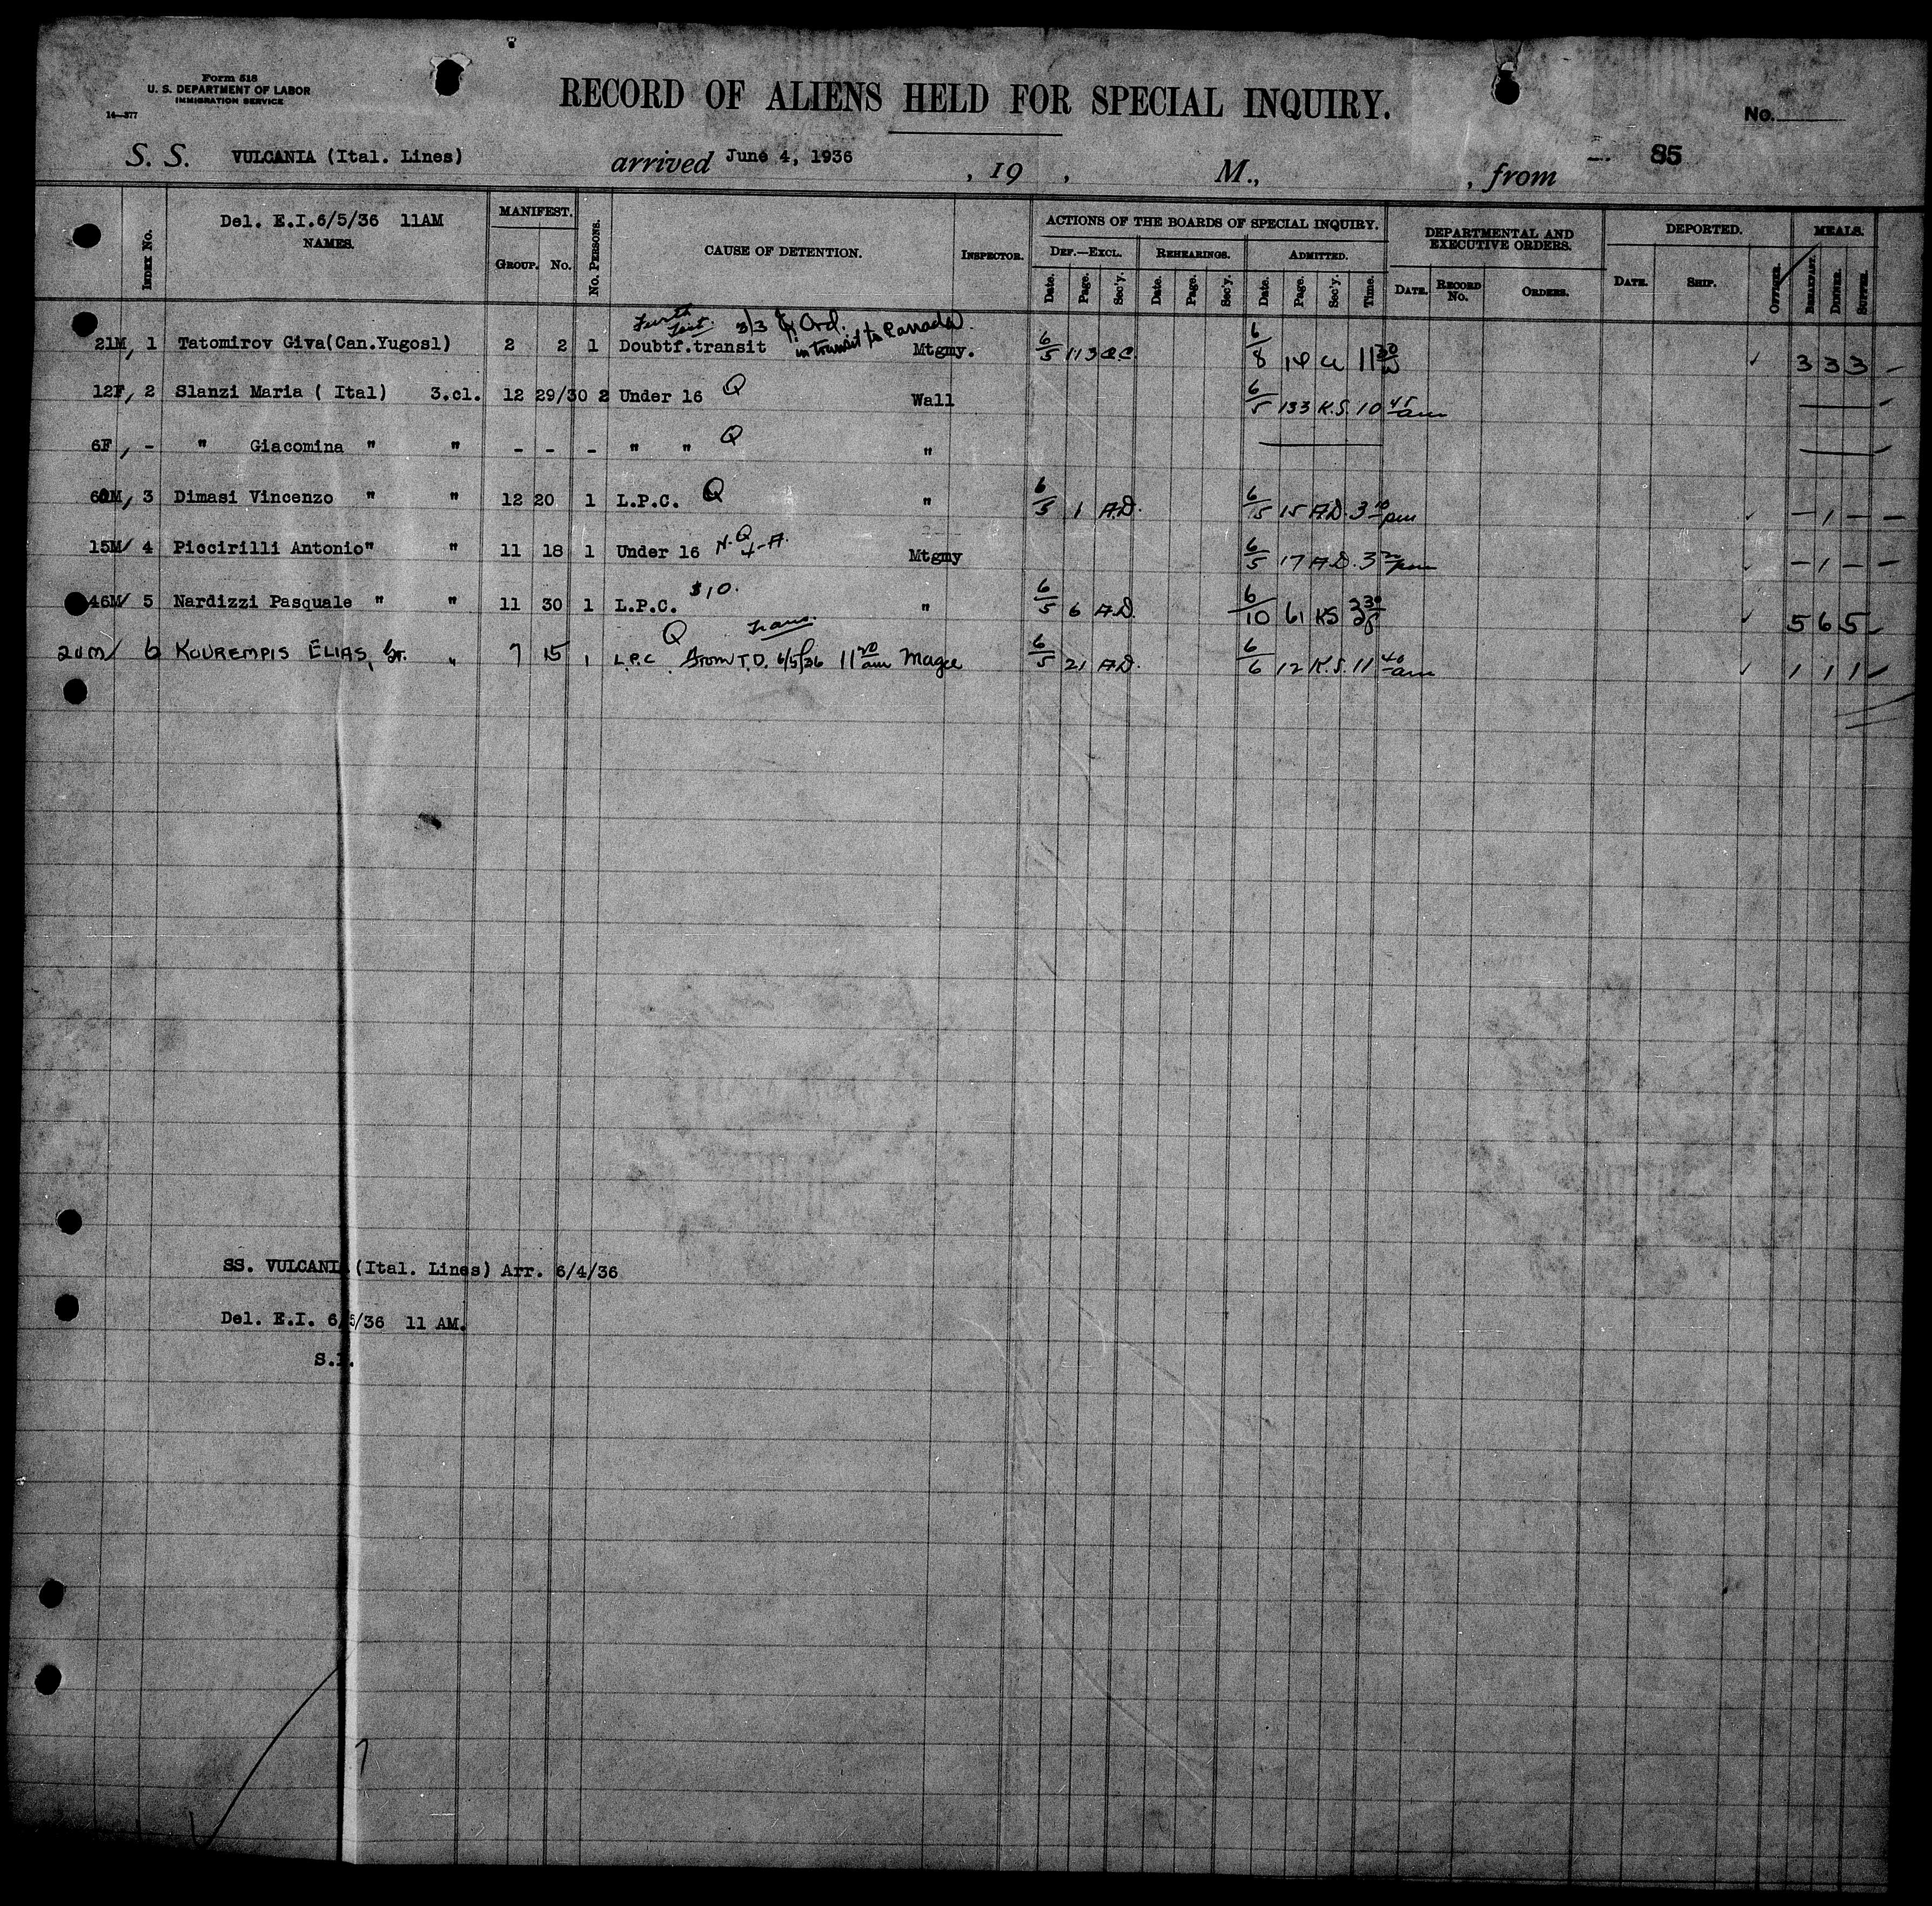 Form 518
U. S. DEPARTMENT OF LABOR
IMMIGRATION SERVICE
14—377
RECORD OF ALIENS HELD FOR SPECIAL INQUIRY.
No.
S. S. VULCANIA (Ital. Lines) arrived June 4, 1936 , 19 , M., , from 85
Del. E.I.6/5/36 11AM
INDEX No. NAMES. MANIFEST. GROUP. No. No. PERSONS. CAUSE OF DETENTION. INSPECTOR. ACTIONS OF THE BOARDS OF SPECIAL INQUIRY. DEF.—EXCL. Date. Page. Sec'y. REHEARINGS. Date. Page. Sec'y. ADMITTED. Date. Page. Sec'y. Time. DEPARTMENTAL AND EXECUTIVE ORDERS. DATE. RECORD No. ORDERS. DEPORTED. DATE. SHIP. OFFICER. MEALS. BREAKFAST. DINNER. SUPPER.
3/3 Ord. in transit to Canada
21M, 1 Tatomirov Giva(Can.Yugosl) 2 2 1 Doubtf.transit Mtgmy. 6/5 113 6/8 14 11 30 3 3 3 –
12F, 2 Slanzi Maria ( Ital) 3.cl. 12 29/30 2 Under 16 Q Wall 6/5 133 K.S. 10 45 am
6F, - " Giacomina " " - - - " " Q "
60M, 3 Dimasi Vincenzo " " 12 20 1 L.P.C. Q " 6/5 1 A.D. 6/5 15 A.D. 3 10 pm – 1 – –
15M/ 4 Piccirilli Antonio" " 11 18 1 Under 16 Q Mtgmy 6/5 17 A.D. 3 pm – 1 – –
46M/ 5 Nardizzi Pasquale " " 11 30 1 L.P.C. $10. " 6/5 6 A.D. 6/10 61 KS 3 30 5 6 5
Q Trans.
20M/ 6 KOUREMPIS ELIAS, Gr. " 7 15 1 L.P.C From T.D. 6/5/36 11 20 am Magee 6/5 21 A.D. 6/6 12 K.S. 11 40 am 1 1 1
SS. VULCANI (Ital. Lines) Arr. 6/4/36
Del. E.I. 6/5/36 11 AM.
S.I.